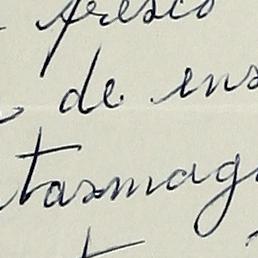 fresco
de ens
tasmag